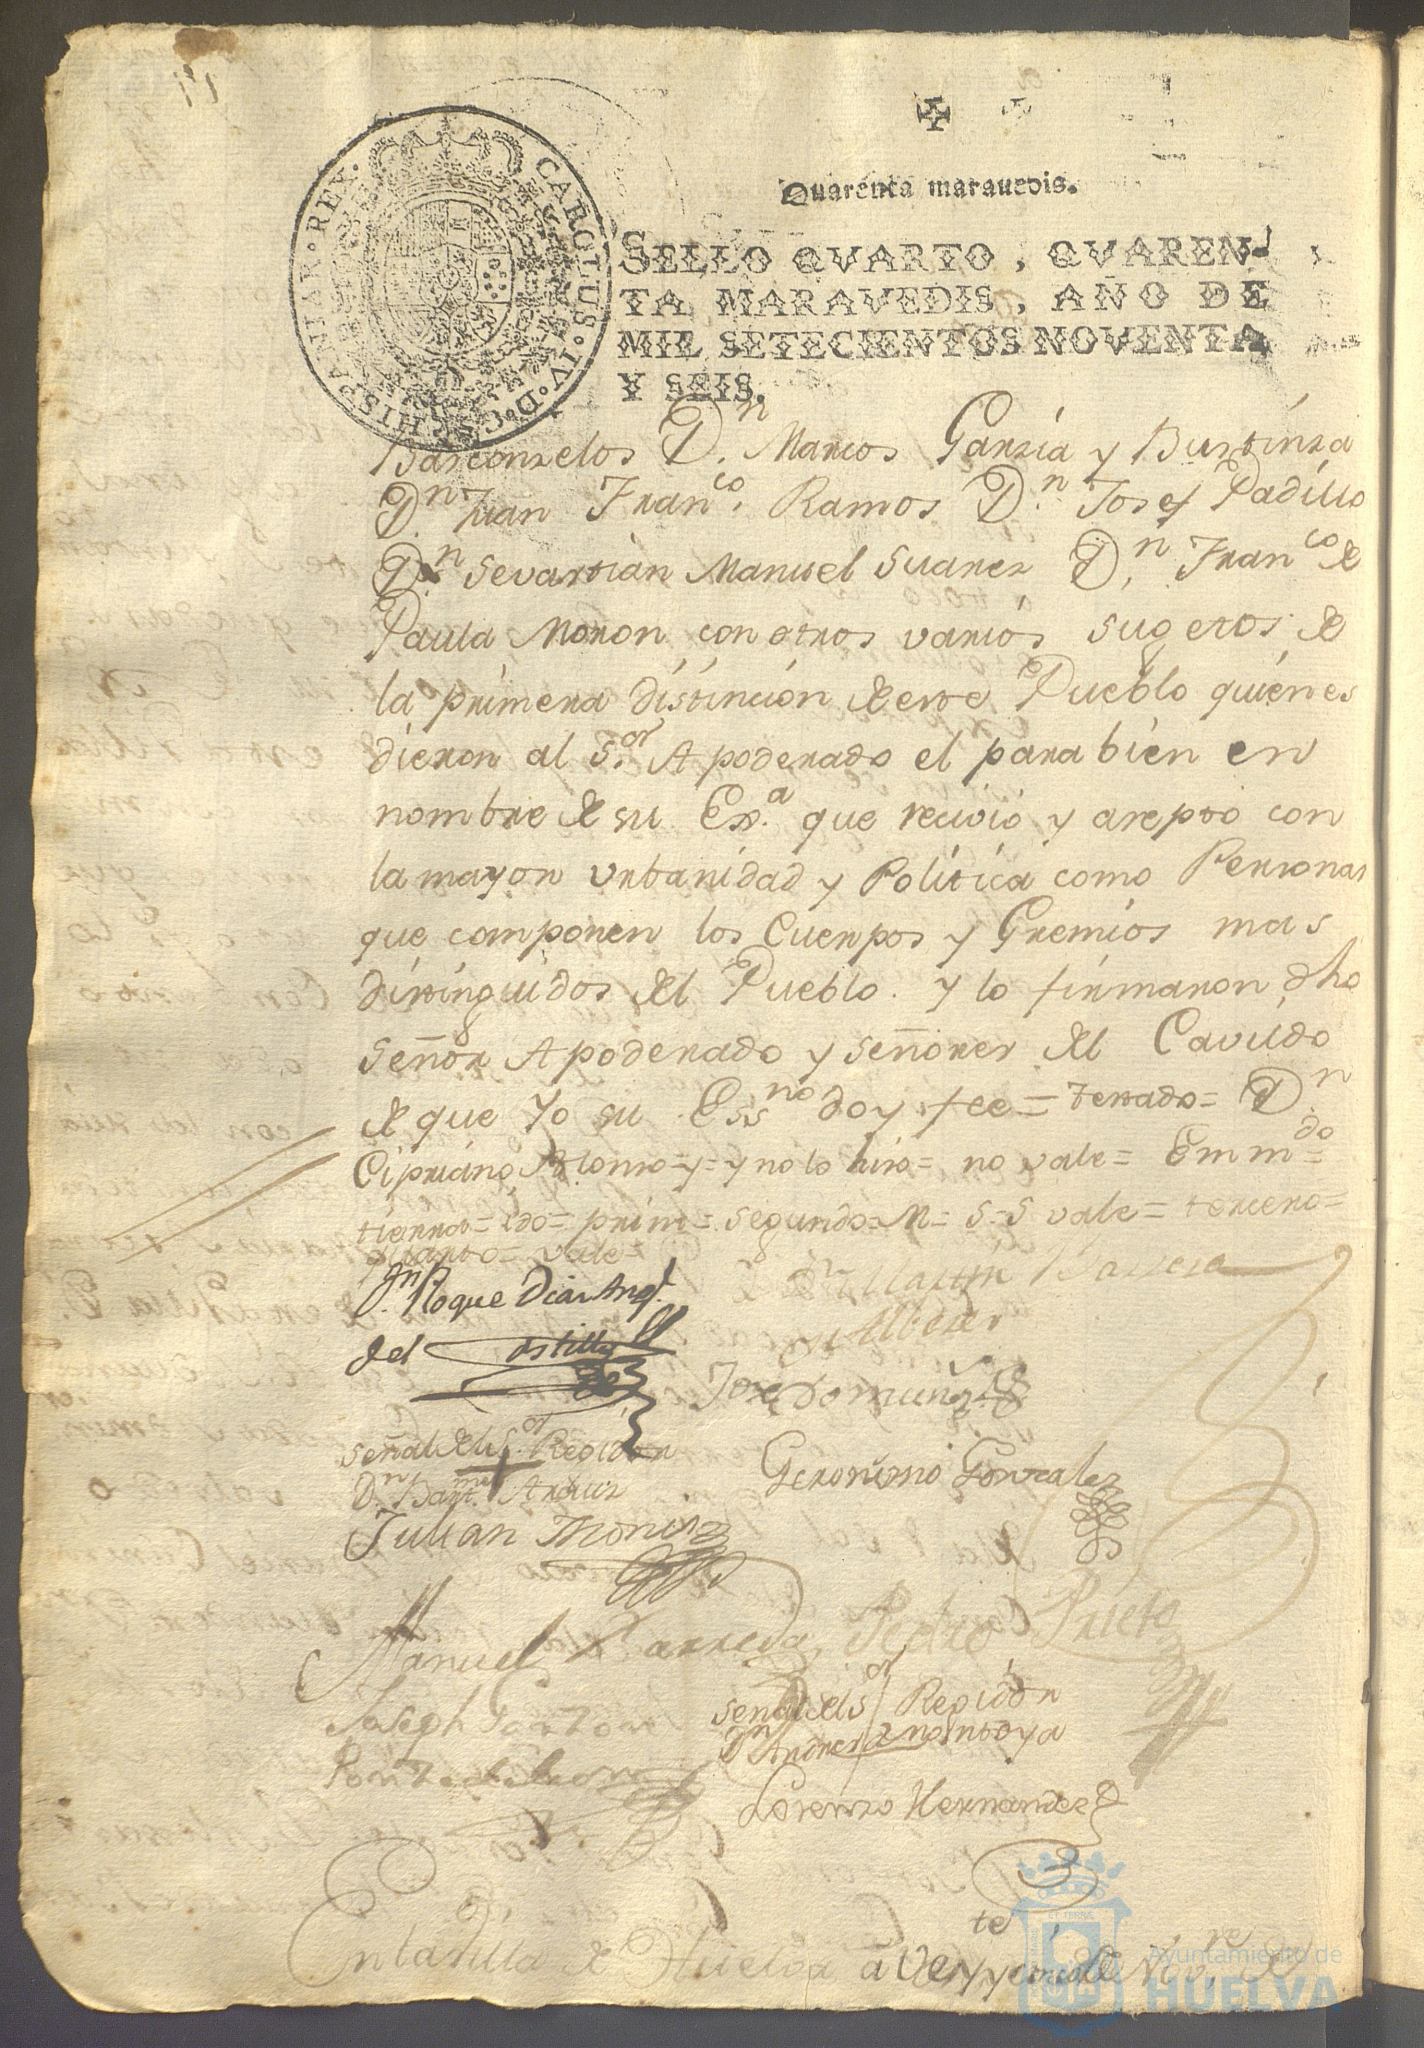 CAROLUS · IV · D · G · HISPANIAR · REX ·
Quarenta maravedis.
SELLO QVARTO, QVAREN-
TA MARAVEDIS, AÑO DE
MIL SETECIENTOS NOVENTA
Y SEIS.
Basconzelos Dn. Marcos Garzia y Burtinza
Dn. Juan Franco. Ramos Dn. Josef Padillo
Dn. Sevastian Manuel Suarez Dn. Franco de
Paula Moron con otros varios sugetos de
la primera distincion de este Pueblo quienes
dieron al Sor. Apoderado el para bien en
nombre de su Exa. que recivio y azepto con
la mayor urbanidad y Politica como Personas
que componen los Cuerpos y Gremios mas
distinguidos del Pueblo. y lo firmaron dho
Señor Apoderado y señores del Cavildo
de que Yo su Essno doy fee = testado = Dn
Cipriano Alonso = y = y no lo hizo = no vale = Emmdo =
= ido = prim = segundo = n = s = s vale = tercero =
quarto = vale =
Dn. Roque Diaz Angl.
del Castillo
Martin Barrera
y Albarer
Josef Domuñoz
señal del Sor. Regidor
Dn. Bartme.
Geronimo Gonzalez
Julian Moniz
Manuel Barreda
Pedro Prieto
Joseph
Ponze de Leon
señal del Sor Regidor
Dn Andres Montoya
Lorenzo Hernandez
En la Villa de Huelva á veynte y cinco de Nove. de
Ayuntamiento de
HUELVA